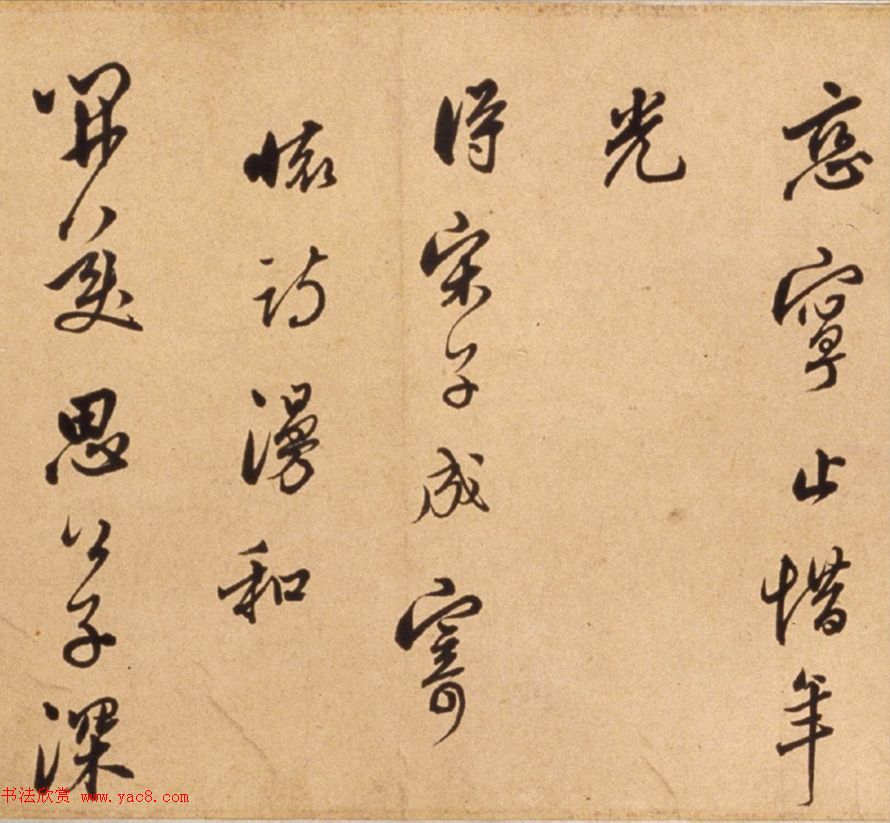 忘寧止惜年
光
得宋子成寄
懷詩漫和
畢美思公子深
书法欣赏 www.yac8.com